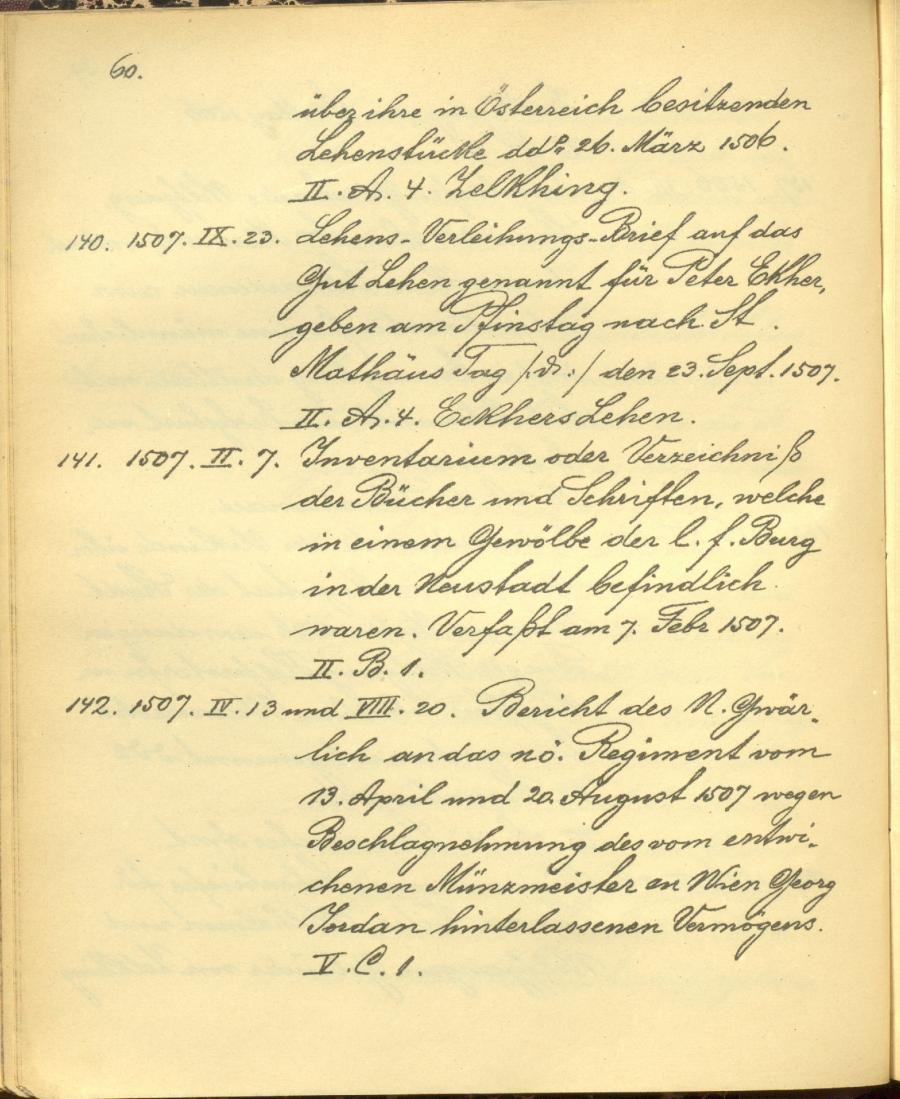 60.
über ihre in Österreich besitzenden
Lehenstücke ddo 26. März 1506.
II. A. 4. Zelkhing.
140. 1507. IX. 23. Lehens-Verleihungs-Brief auf das
Gut Lehen genannt für Peter Ekher,
geben am Pfinstag nach St.
Mathäus Tag /: d. :/ den 23. Sept. 1507.
II. A. 4. Eckhers Lehen.
141. 1507. II. 7. Inventarium oder Verzeichniß
der Bücher und Schriften, welche
in einem Gewölbe der l. f. Burg
in der Neustadt befindlich
waren. Verfaßt am 7. Febr 1507.
II. B. 1.
142. 1507. IV. 13 und VIII. 20. Bericht des N. Gwär-
lich an das nö. Regiment vom
13. April und 20. August 1507 wegen
Beschlagnehmung des vom entwi-
chenen Münzmeister in Wien Georg
Jordan hinterlassenen Vermögens.
V. C. 1.